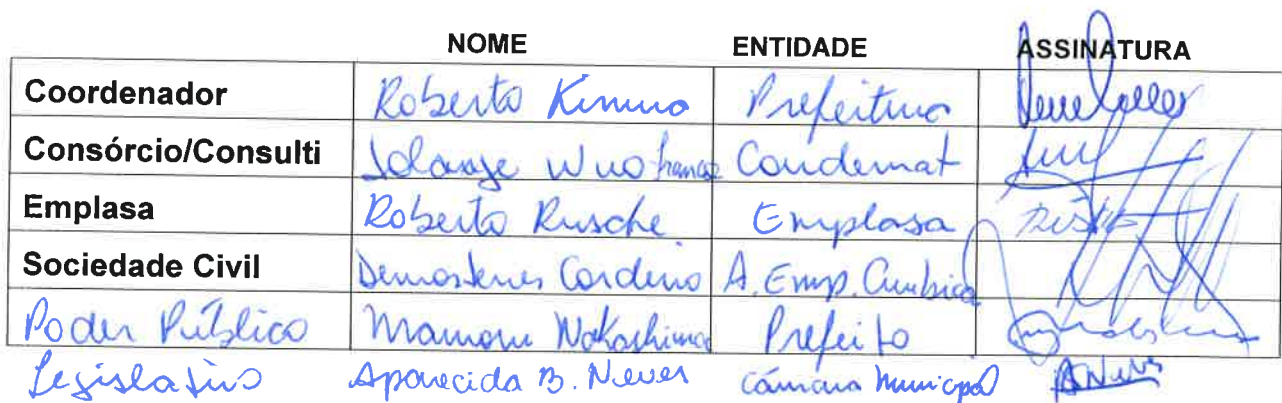 NOME ENTIDADE ASSINATURA
Coordenador Roberto Kimura Prefeitura
Consórcio/Consulti Solange Wuo Franco Condemat
Emplasa Roberto Rusche Emplasa
Sociedade Civil Demostenes Cordeiro A. Emp. Cumbica
Poder Público Mamoru Nakashima Prefeito
Legislativo Aparecida B. Neves Câmara Municipal ANeves